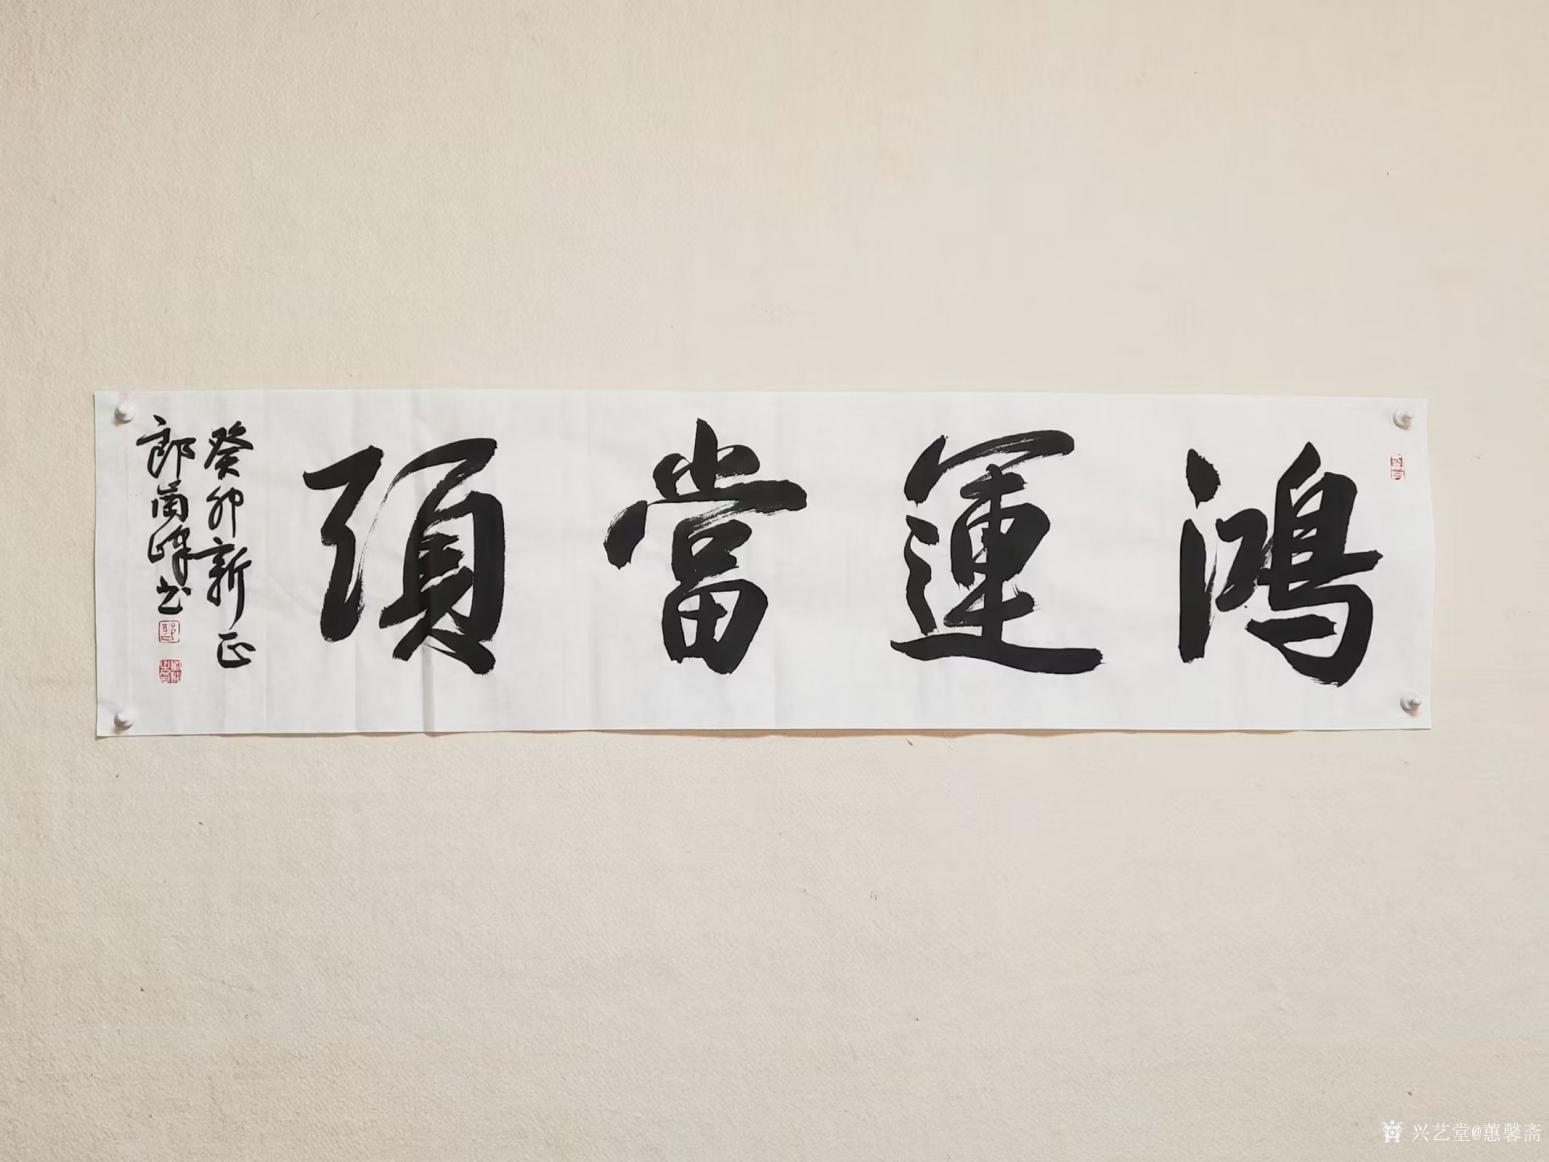 鴻運當頭
癸卯新正
郎岗峰书
兴艺堂@蕙馨斋